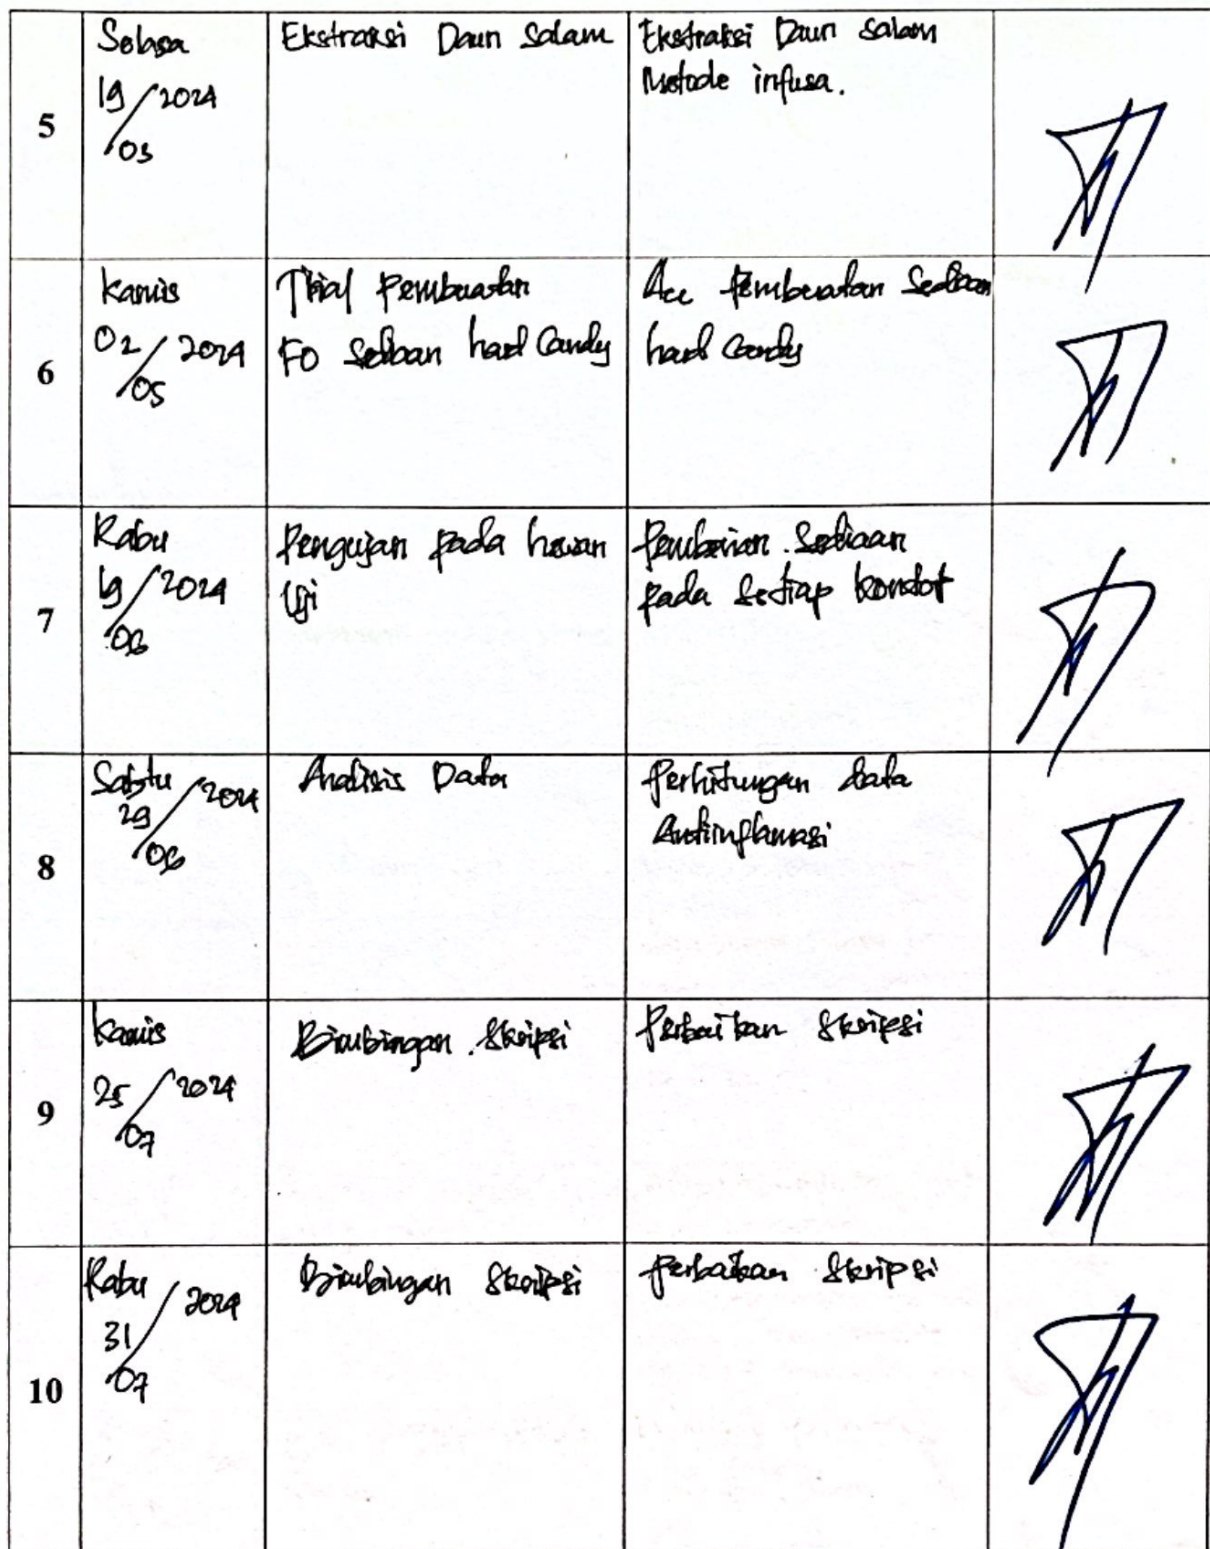 5
Selasa
19/03/2024
Ekstraksi Daun Salam
Ekstraksi Daun Salam
Metode infusa.
6
Kamis
02/05/2024
Trial Pembuatan
F0 Sediaan hard Candy
Acc Pembuatan Sediaan
hard Candy
7
Rabu
19/06/2024
Pengujian pada hewan
Uji
Pemberian Sediaan
pada setiap
8
Sabtu
29/06/2024
Analisis Data
Perhitungan data
Antiinflamasi
9
Kamis
25/07/2024
Bimbingan Skripsi
Perbaikan Skripsi
10
Rabu
31/07/2024
Bimbingan Skripsi
Perbaikan Skripsi